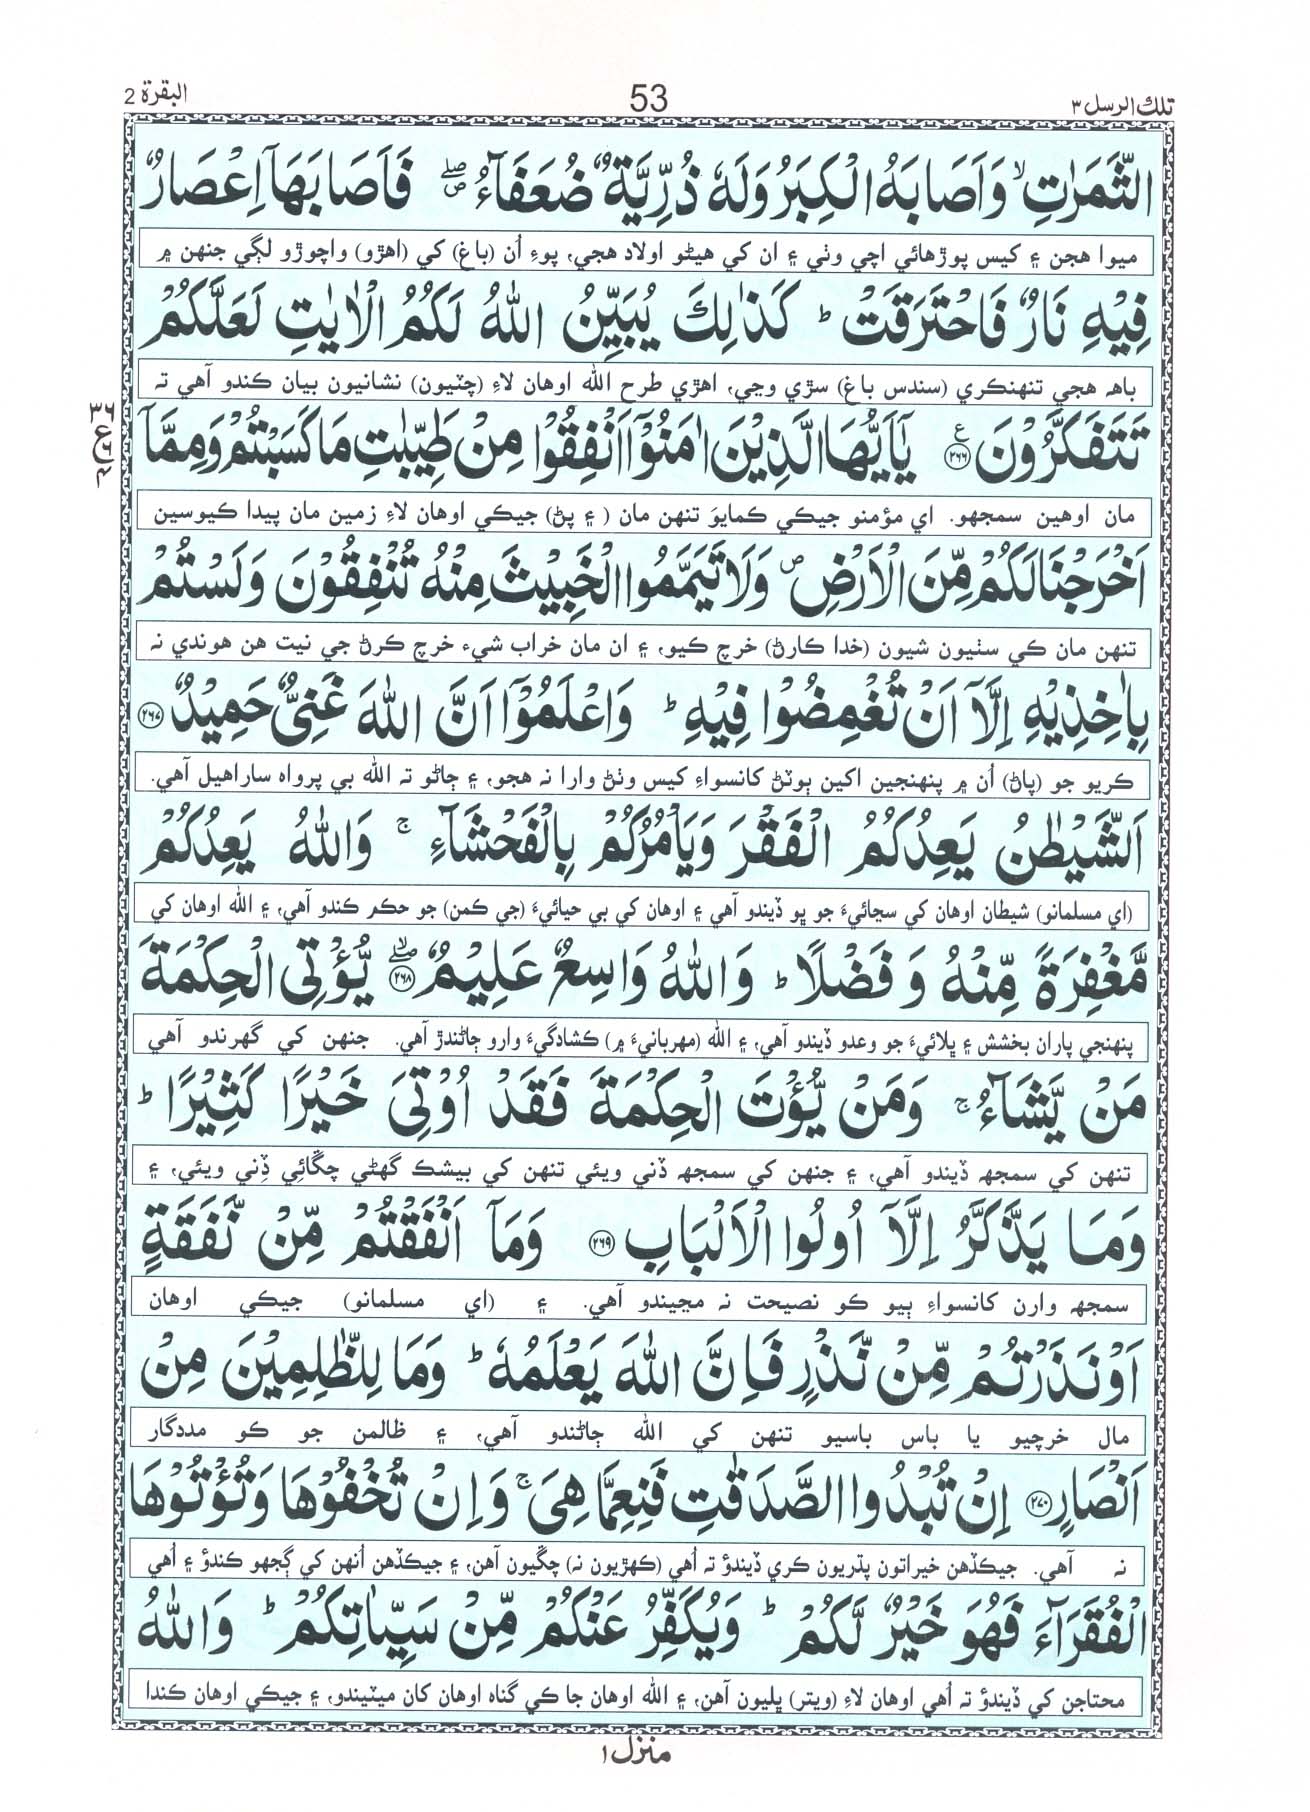 تلك الرسل ۳
53
البقرة 2
الثَّمَرٰتِ ۙ وَاَصَابَهُ الْكِبَرُ وَلَهٗ ذُرِّيَّةٌ ضُعَفَآءُ ۖ ۚ فَاَصَابَهَاۤ اِعْصَارٌ
ميوا هجن ۽ کيس پوڙهائي اچي وٺي ۽ ان کي هيڻو اولاد هجي، پوءِ اُن (باغ) کي (اهڙو) واچوڙو لڳي جنهن ۾
فِيْهِ نَارٌ فَاحْتَرَقَتْ ؕ كَذٰلِكَ يُبَيِّنُ اللّٰهُ لَكُمُ الْاٰيٰتِ لَعَلَّكُمْ
باهه هجي تنهنڪري (سندس باغ) سڙي وڃي، اهڙي طرح الله اوهان لاءِ (چٽيون) نشانيون بيان ڪندو آهي ته
تَتَفَكَّرُوْنَ ﴿۲۶۶﴾ ع يٰۤاَيُّهَا الَّذِيْنَ اٰمَنُوْۤا اَنْفِقُوْا مِنْ طَيِّبٰتِ مَا كَسَبْتُمْ وَمِمَّاۤ
مان اوهين سمجهو. اي مؤمنو جيڪي ڪمايوَ تنهن مان ( ۽ پڻ) جيڪي اوهان لاءِ زمين مان پيدا ڪيوسين
اَخْرَجْنَا لَكُمْ مِّنَ الْاَرْضِ ۪ وَلَا تَيَمَّمُوا الْخَبِيْثَ مِنْهُ تُنْفِقُوْنَ وَلَسْتُمْ
تنهن مان ڪي سٺيون شيون (خدا ڪارڻ) خرچ ڪيو، ۽ ان مان خراب شيءِ خرچ ڪرڻ جي نيت هن هوندي نه
بِاٰخِذِيْهِ اِلَّاۤ اَنْ تُغْمِضُوْا فِيْهِ ؕ وَاعْلَمُوْۤا اَنَّ اللّٰهَ غَنِيٌّ حَمِيْدٌ ﴿۲۶۷﴾
ڪريو جو (پاڻ) اُن ۾ پنهنجين اکين ٻوٽڻ کانسواءِ کيس وٺڻ وارا نه هجو، ۽ ڄاڻو ته الله بي پرواه ساراهيل آهي.
اَلشَّيْطٰنُ يَعِدُكُمُ الْفَقْرَ وَيَاْمُرُكُمْ بِالْفَحْشَآءِ ۚ وَاللّٰهُ يَعِدُكُمْ
(اي مسلمانو) شيطان اوهان کي سڃائيءَ جو ڀو ڏيندو آهي ۽ اوهان کي بي حيائيءَ (جي ڪمن) جو حڪم ڪندو آهي، ۽ الله اوهان کي
مَّغْفِرَةً مِّنْهُ وَفَضْلًا ؕ وَاللّٰهُ وَاسِعٌ عَلِيْمٌ ﴿۲۶۸﴾ ۖۙ يُّؤْتِى الْحِكْمَةَ
پنهنجي پاران بخشش ۽ ڀلائيءَ جو وعدو ڏيندو آهي، ۽ الله (مهربانيءَ ۾) ڪشادگيءَ وارو ڄاڻندڙ آهي. جنهن کي گهرندو آهي
مَنْ يَّشَآءُ ۚ وَمَنْ يُّؤْتَ الْحِكْمَةَ فَقَدْ اُوْتِىَ خَيْرًا كَثِيْرًا ؕ
تنهن کي سمجهه ڏيندو آهي، ۽ جنهن کي سمجهه ڏني ويئي تنهن کي بيشڪ گهڻي چڱائِي ڏِني ويئي، ۽
وَمَا يَذَّكَّرُ اِلَّاۤ اُولُوا الْاَلْبَابِ ﴿۲۶۹﴾ وَمَاۤ اَنْفَقْتُمْ مِّنْ نَّفَقَةٍ
سمجهه وارن کانسواءِ ٻيو ڪو نصيحت نه مڃيندو آهي. ۽ (اي مسلمانو) جيڪي اوهان
اَوْ نَذَرْتُمْ مِّنْ نَّذْرٍ فَاِنَّ اللّٰهَ يَعْلَمُهٗ ؕ وَمَا لِلظّٰلِمِيْنَ مِنْ
مال خرچيو يا باس باسيو تنهن کي الله ڄاڻندو آهي، ۽ ظالمن جو ڪو مددگار
اَنْصَارٍ ﴿۲۷۰﴾ اِنْ تُبْدُوا الصَّدَقٰتِ فَنِعِمَّا هِىَ ۚ وَاِنْ تُخْفُوْهَا وَتُؤْتُوْهَا
نه آهي. جيڪڏهن خيراتون پڌريون ڪري ڏيندؤ ته اُهي (ڪهڙيون نه) چڱيون آهن، ۽ جيڪڏهن اُنهن کي ڳجهو ڪندؤ ۽ اُهي
الْفُقَرَآءَ فَهُوَ خَيْرٌ لَّكُمْ ؕ وَيُكَفِّرُ عَنْكُمْ مِّنْ سَيِّاٰتِكُمْ ؕ وَاللّٰهُ
محتاجن کي ڏيندؤ ته اُهي اوهان لاءِ (ويتر) ڀليون آهن، ۽ الله اوهان جا ڪي گناه اوهان کان ميٽيندو، ۽ جيڪي اوهان ڪندا
منزل ۱